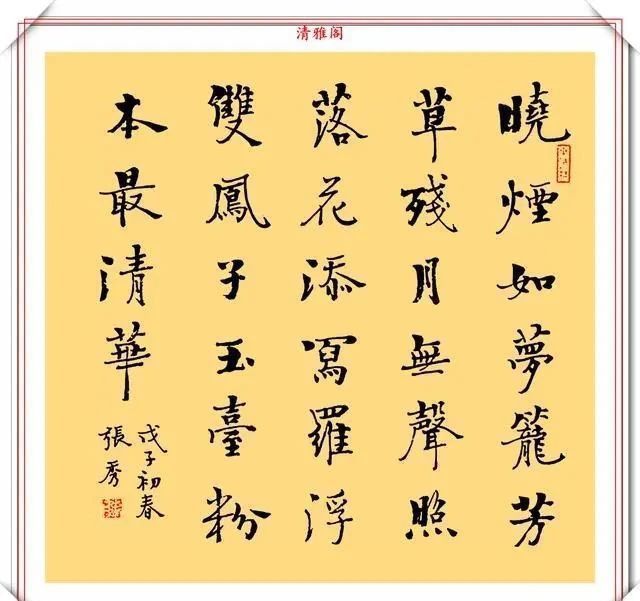 清雅阁
曉煙如夢籠芳
草殘月無聲照
落花添寫羅浮
雙鳳子玉臺粉
本最清華
戊子初春
張秀